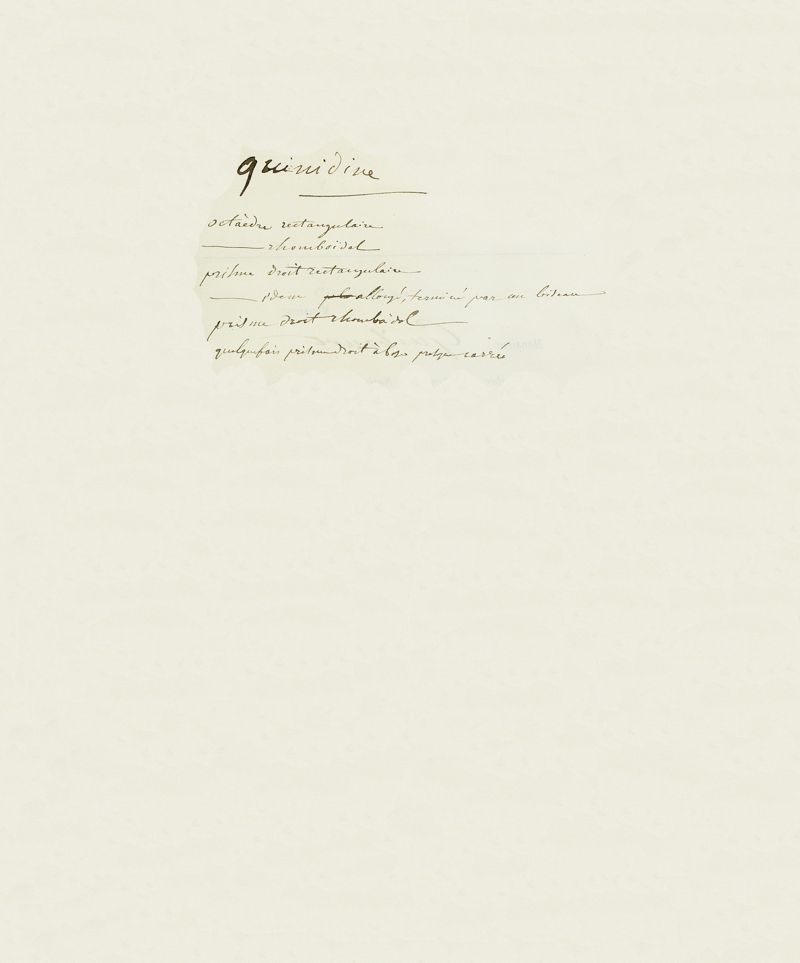 quinidine
octaèdre rectangulaire
——— rhomboïdal
prisme droit rectangulaire
——— idem allongé, terminé par un biseau
prisme droit rhomboïdal
quelquefois prisme droit à base presque carrée